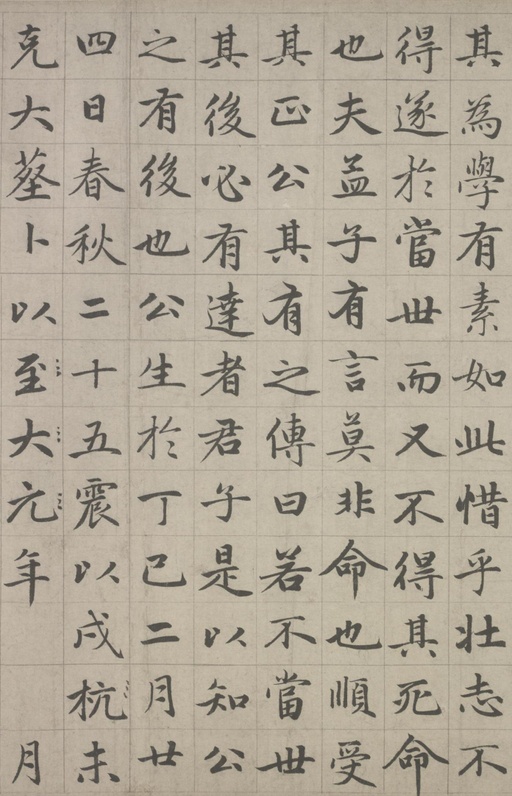 其為學有素如此惜乎壯志不
得遂於當世而又不得其死命
也夫孟子有言莫非命也順受
其正公其有之傳曰若不當世
其後必有達者君子是以知公
之有後也公生於丁巳二月廿
四日春秋二十五震以戍杭未
克大葬卜以至大元年 月